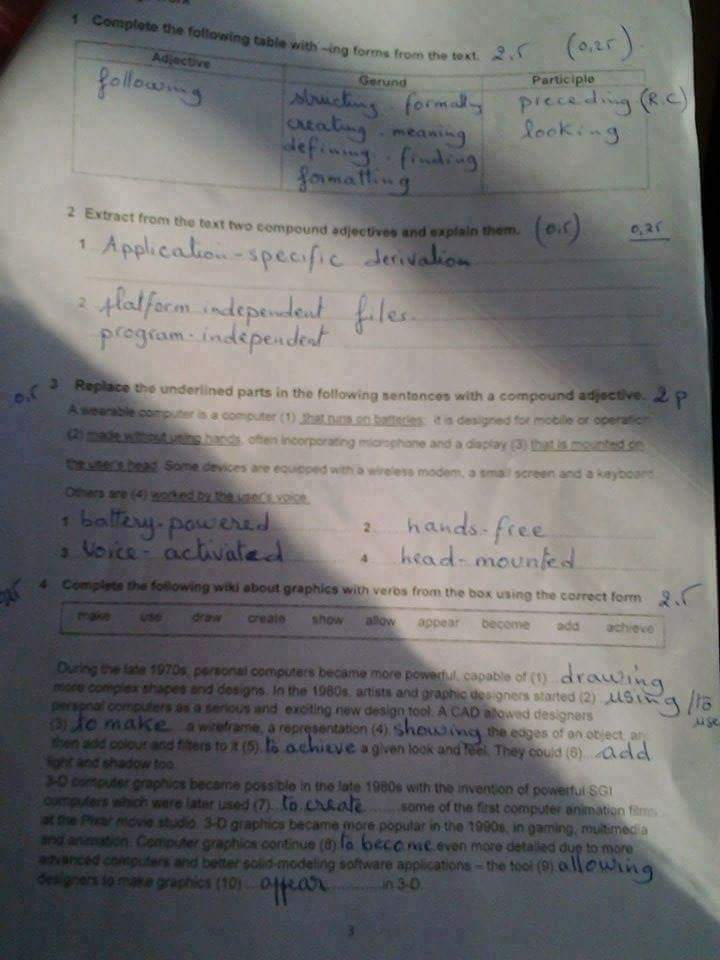 1 Complete the following table with –ing forms from the text. 2.5 (0,25).
Adjective Gerund Participle
following structing formally preceding (R.C)
creating . meaning looking
defining . finding
formatting
2 Extract from the text two compound adjectives and explain them. (0.5) 0,25
1 Application-specific derivation
2 platform independent files.
program-independent
0.5 3 Replace the underlined parts in the following sentences with a compound adjective. 2 p
A wearable computer is a computer (1) that runs on batteries; it is designed for mobile or operation
(2) made without using hands, often incorporating microphone and a display (3) that is mounted on
the user's head. Some devices are equipped with a wireless modem, a small screen and a keyboard.
Others are (4) worked by the user's voice.
1 battery-powered 2. hands-free
3 Voice-activated 4 head-mounted
4 Complete the following wiki about graphics with verbs from the box using the correct form 2.5
make use draw create show allow appear become add achieve
During the late 1970s, personal computers became more powerful, capable of (1) drawing
more complex shapes and designs. In the 1980s, artists and graphic designers started (2) using /to
personal computers as a serious and exciting new design tool. A CAD allowed designers use
(3) to make a wireframe, a representation (4) showing the edges of an object, an
then add colour and filters to it (5) to achieve a given look and feel. They could (6) add
light and shadow too.
3-D computer graphics became possible in the late 1980s with the invention of powerful SGI
computers which were later used (7) to create some of the first computer animation films
at the Pixar movie studio. 3-D graphics became more popular in the 1990s, in gaming, multimedia
and animation. Computer graphics continue (8) to become even more detailed due to more
advanced computers and better solid-modeling software applications – the tool (9) allowing
designers to make graphics (10) appear in 3-D.
3